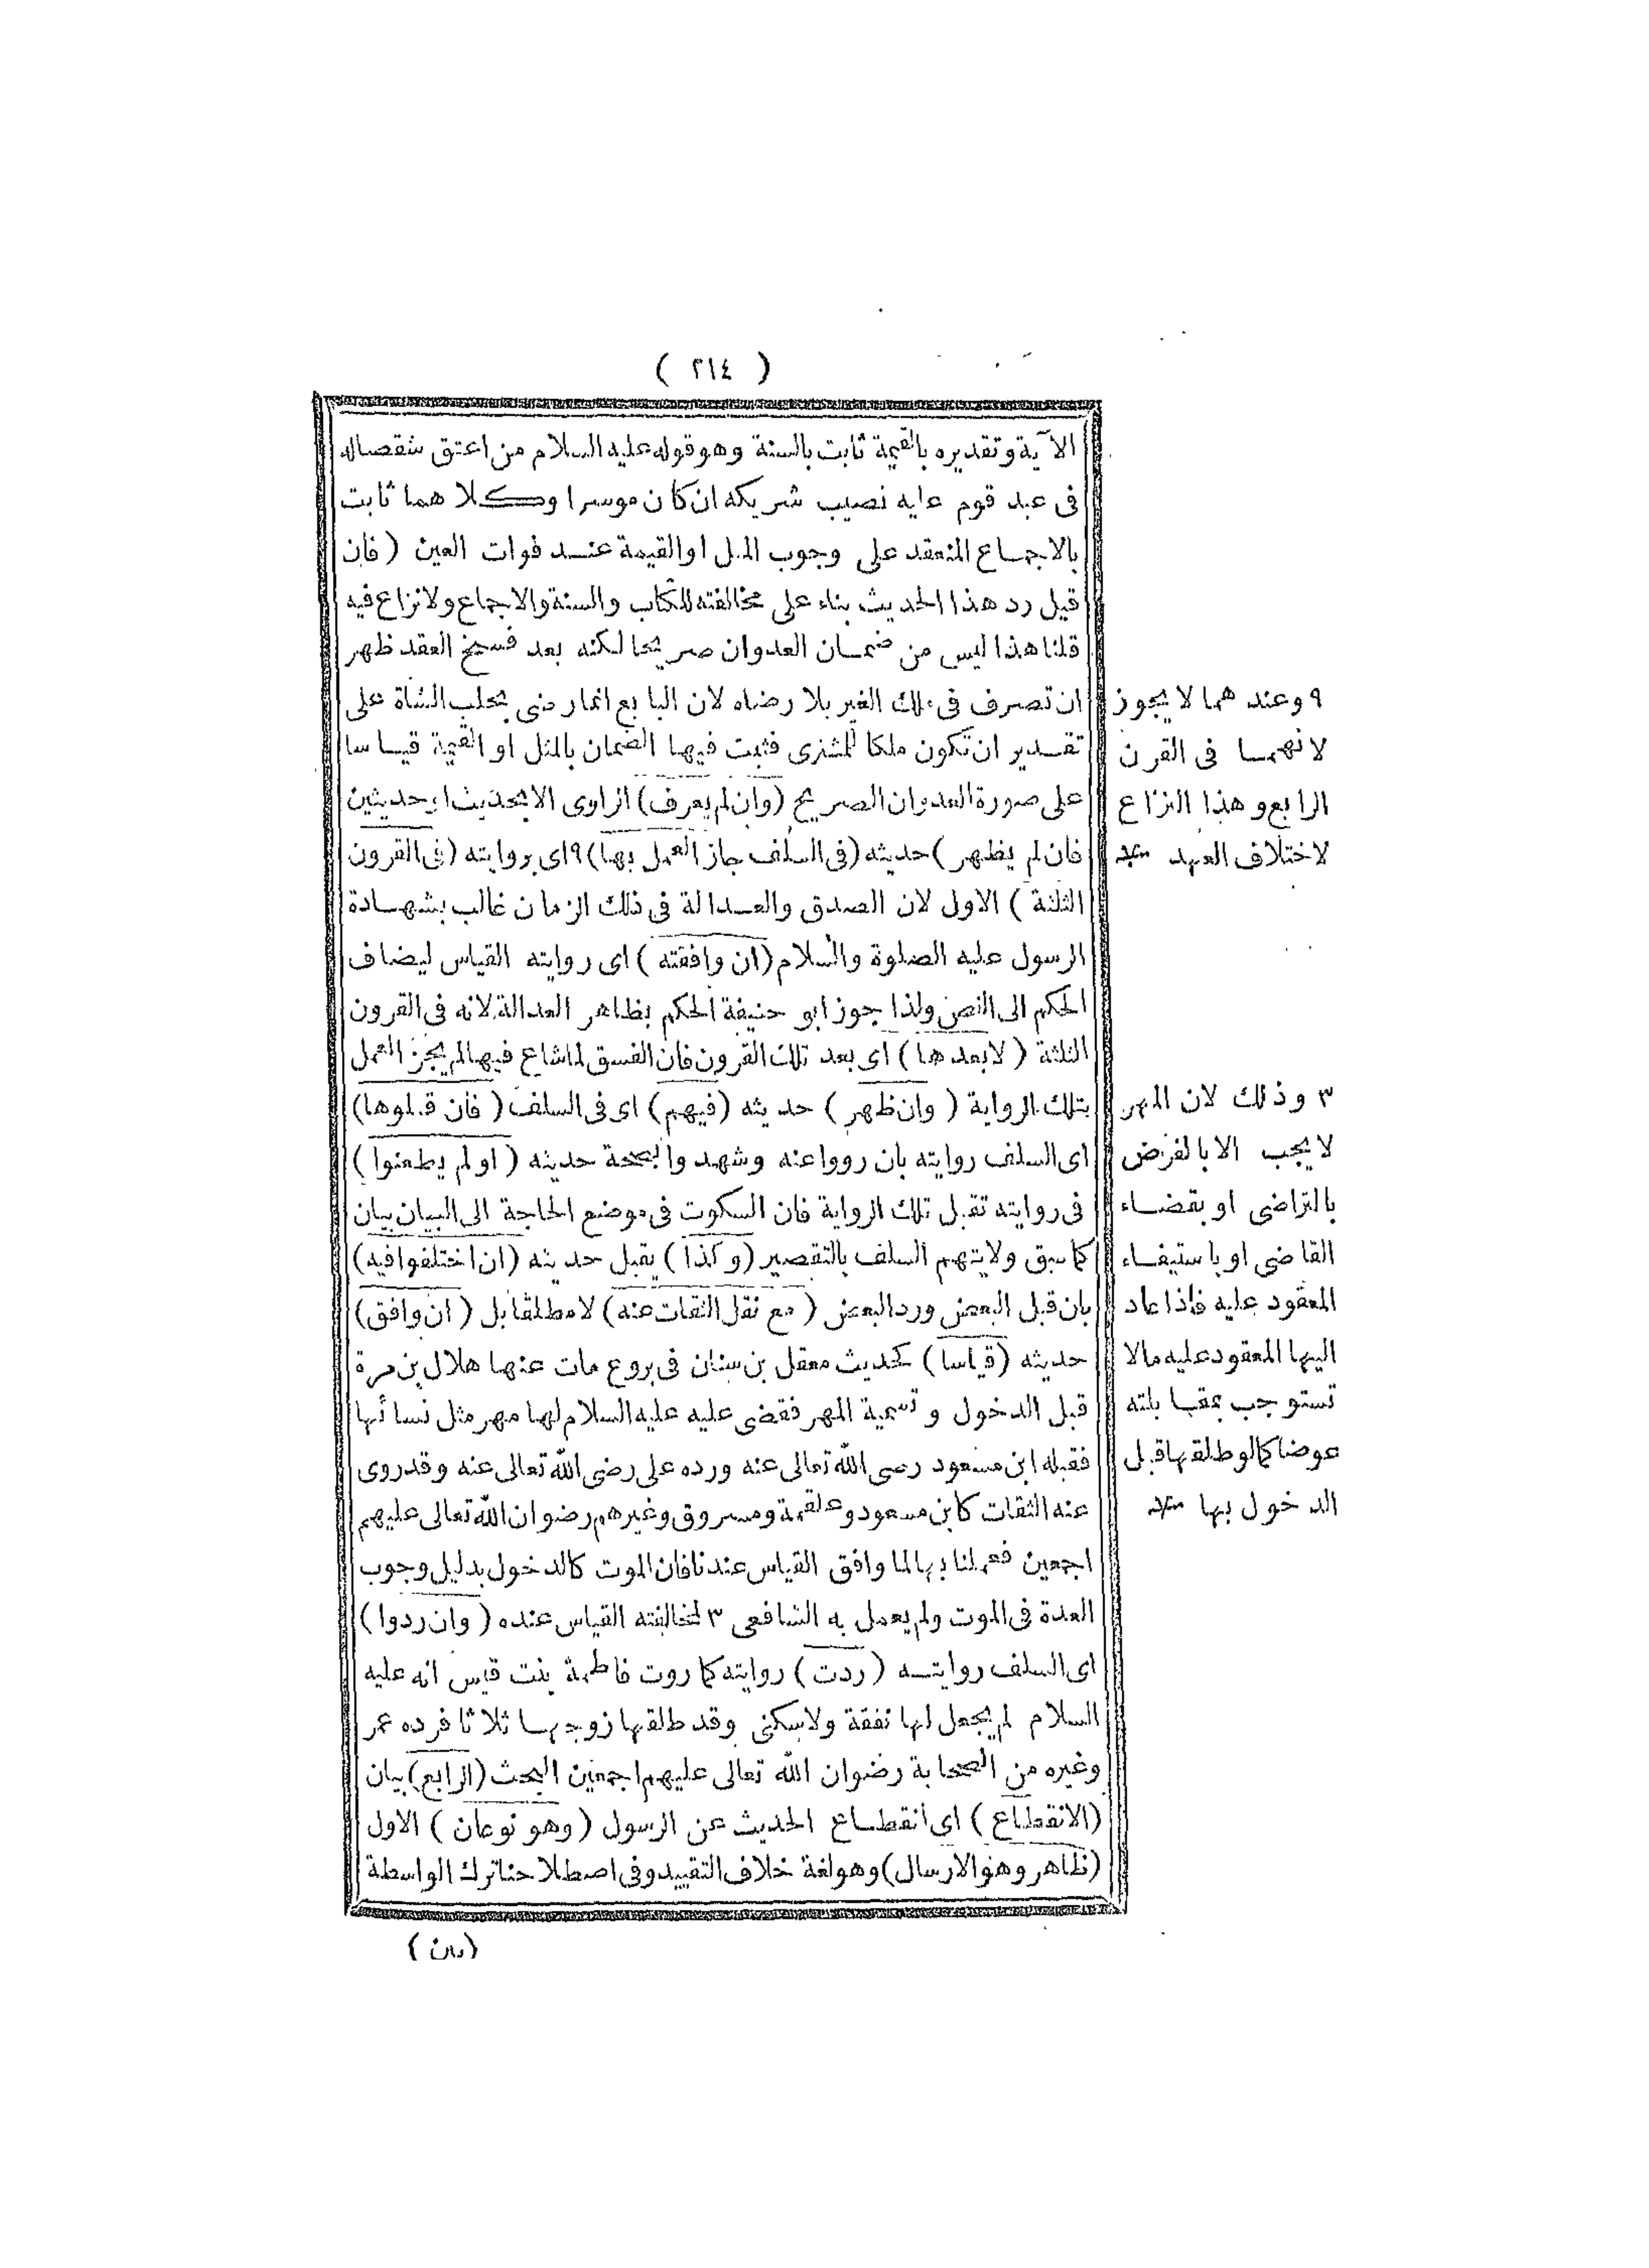 ( ٢١٤ )
الآية وتقديره بالقيمة ثابت بالسنة وهو قوله عليه السلام من اعتق شقصاله
فى عبد قوم عليه نصيب شريكه ان كان موسرا وكلا هما ثابت
بالاجماع المنعقد على وجوب المثل او القيمة عند فوات العين ( فان
قيل رد هذا الحديث بناء على مخالفته للكتاب والسنة والاجماع ولانزاع فيه
قلنا هذا ليس من ضمان العدوان صريحا لكنه بعد فسخ العقد ظهر
ان تصرف فى ملك الغير بلا رضاه لان البايع انما رضى بحلب الشاة على
تقدير ان تكون ملكا للمشترى فثبت فيها الضمان بالمثل او القيمة قياسا
على صورة العدوان الصريح (وان لم يعرف) الراوى الا بحديث او حديثين
فان لم يظهر ) حديثه (فى السلف جاز العمل بها) ٩ اى بروايته (فى القرون
الثلثة ) الاول لان الصدق والعدالة فى ذلك الزمان غالب بشهادة
الرسول عليه الصلوة والسلام (ان وافقته ) اى روايته القياس ليضاف
الحكم الى النص ولذا جوز ابو حنيفة الحكم بظاهر العدالة لانه فى القرون
الثلثة ( لابعدها ) اى بعد تلك القرون فان الفسق لما شاع فيها لم يجز العمل
بتلك الرواية ( وان ظهر ) حديثه (فيهم) اى فى السلف ( فان قبلوها)
اى السلف روايته بان رووا عنه وشهدوا بصحة حديثه ( اولم يطعنوا )
فى روايته تقبل تلك الرواية فان السكوت فى موضع الحاجة الى البيان بيان
كما سبق ولايتهم السلف بالتقصير (وكذا ) يقبل حديثه (ان اختلفوا فيه)
بان قبل البعض ورد البعض ( مع نقل الثقات عنه ) لا مطلقا بل ( ان وافق)
حديثه (قياسا ) كحديث معقل بن سنان فى بروع مات عنها هلال بن مرة
قبل الدخول وتسمية المهر فقضى عليه عليه السلام لها مهر مثل نسائها
فقبله ابن مسعود رضى الله تعالى عنه ورده على رضى الله تعالى عنه وقد روى
عنه الثقات كابن مسعود وعلقمة ومسروق وغيرهم رضوان الله تعالى عليهم
اجمعين فعملنا بها لما وافق القياس عندنا فان الموت كالدخول بدليل وجوب
العدة فى الموت ولم يعمل به الشافعى ٣ لمخالفته القياس عنده ( وان ردوا )
اى السلف روايته ( ردت ) روايته كما روت فاطمة بنت قيس انه عليه
السلام لم يجعل لها نفقة ولاسكنى وقد طلقها زوجها ثلاثا فرده عمر
وغيره من الصحابة رضوان الله تعالى عليهم اجمعين البحث (الرابع) بيان
(الانقطاع ) اى انقطاع الحديث عن الرسول ( وهو نوعان ) الاول
(ظاهر وهو الارسال) وهو لغة خلاف التقييد وفى اصطلاحنا ترك الواسطة
٩ وعند هما لا يجوز
لانهما فى القرن
الرابع وهذا النزاع
لاختلاف العهد
٣ وذلك لان المهر
لايجب الا بالفرض
بالتراضى او بقضاء
القاضى او باستيفاء
المعقود عليه فاذا عاد
اليها المعقود عليه مالا
تستوجب بمقابلته
عوضا كما لو طلقها قبل
الدخول بها